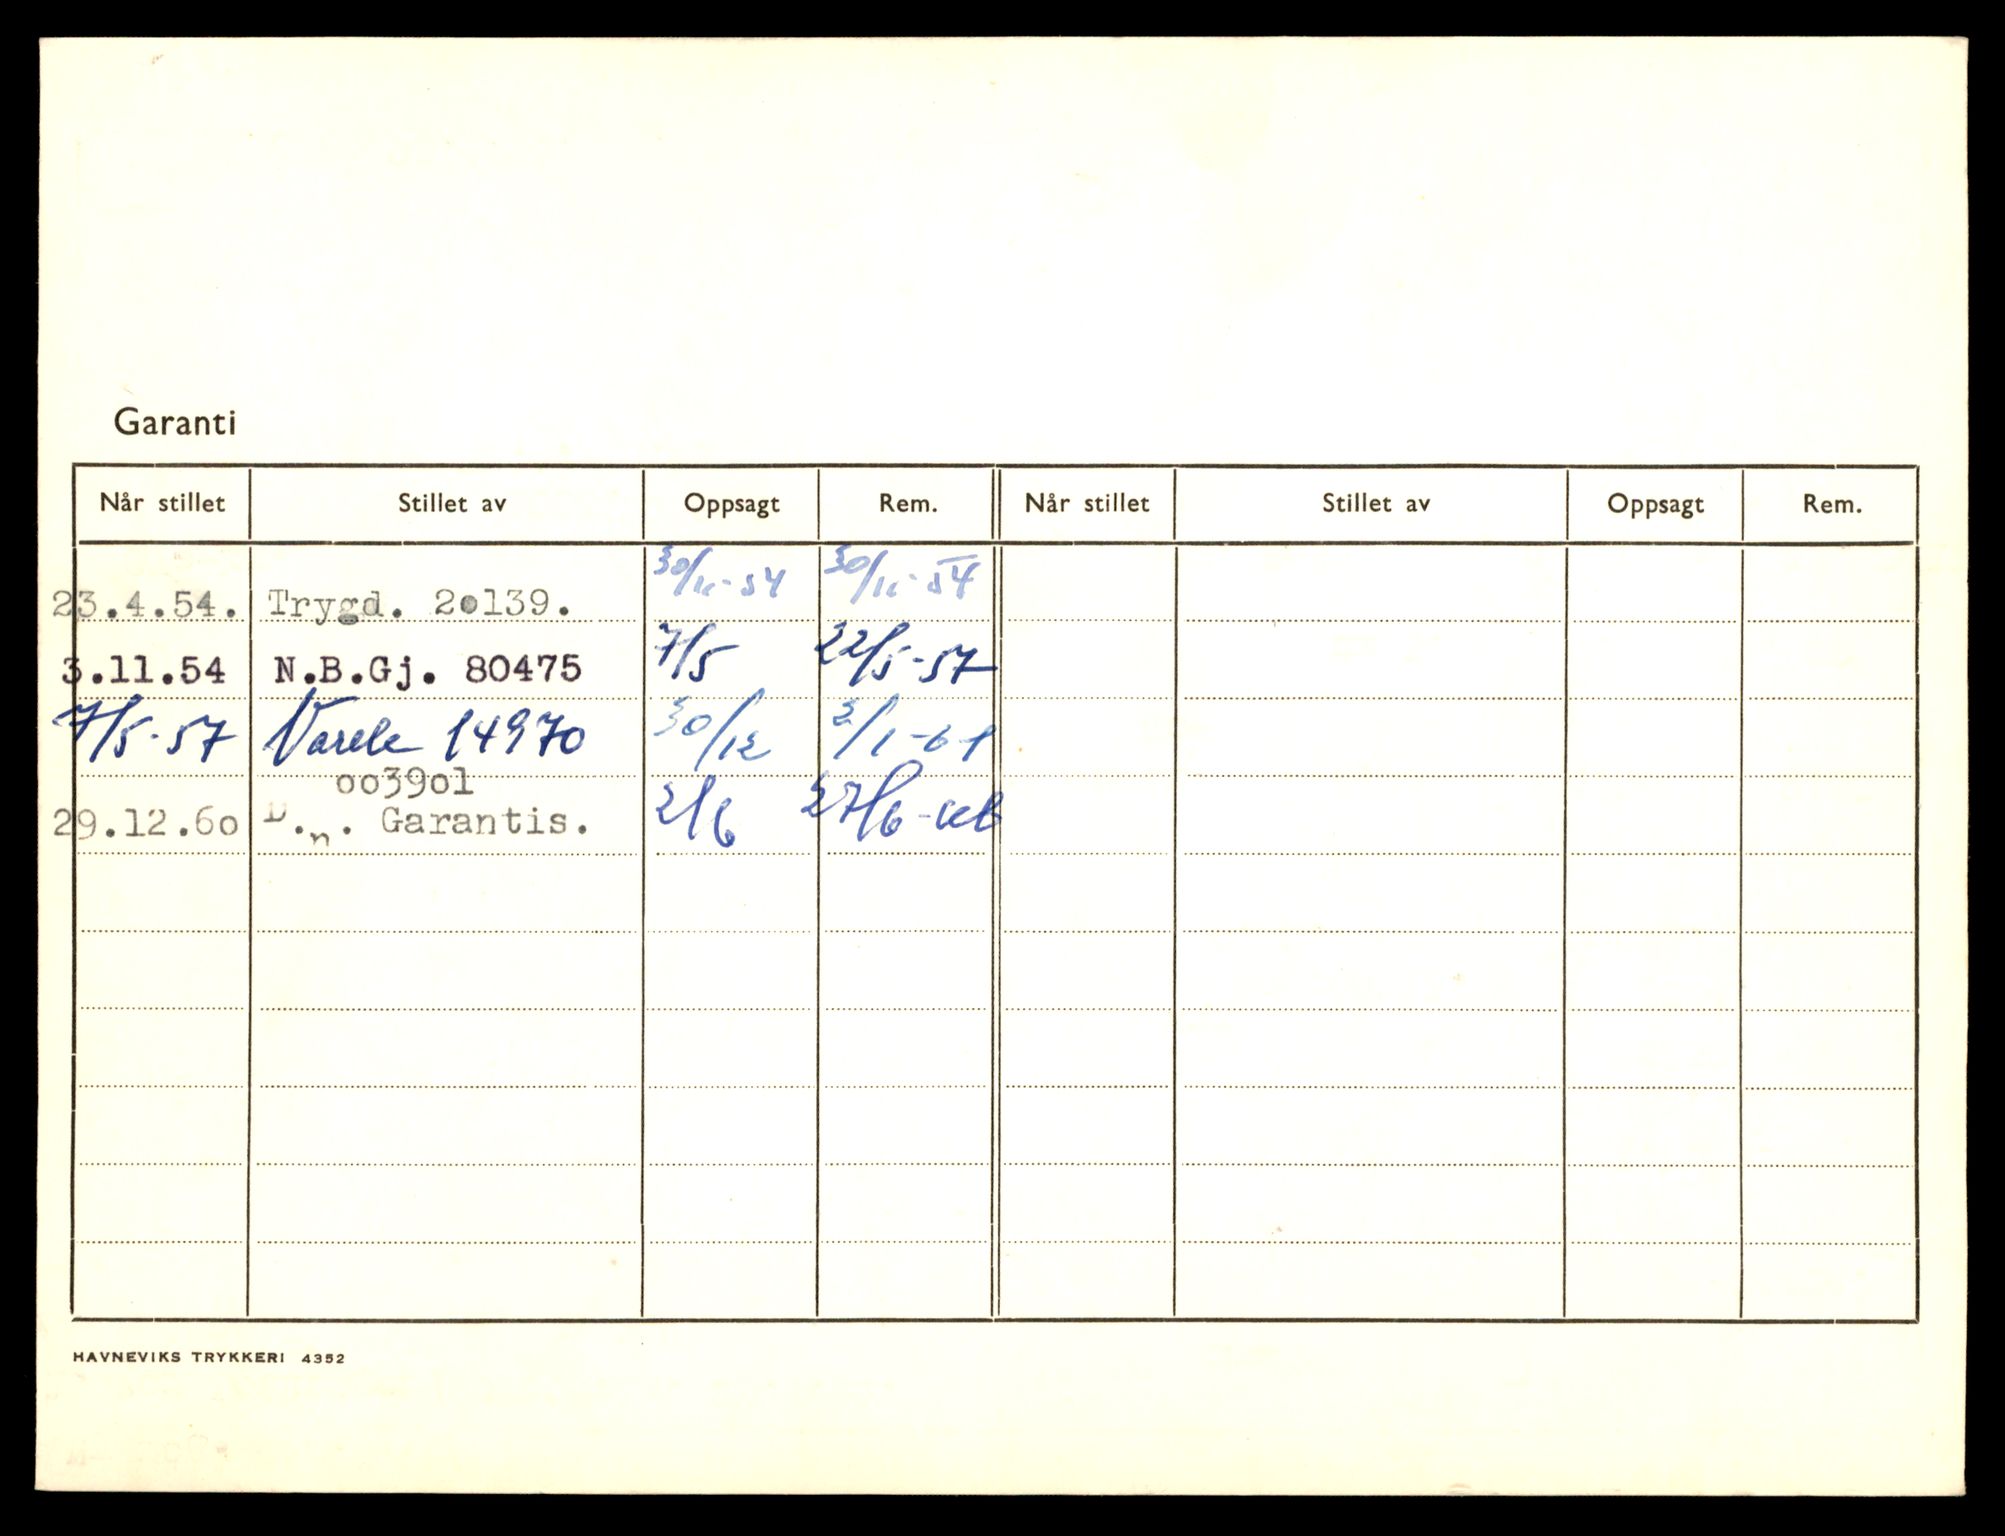 Garanti
Når stillet Stillet av Oppsagt Rem. Når stillet Stillet av Oppsagt Rem.
23.4.54. Trygd. 20139. 30/11-54 30/11-54
3.11.54 N.B.Gj. 80475 7/5 22/5-57
7/5-57 14970 30/12 2/1-61
oo39o1
29.12.6o D.n. Garantis. 2/6 27/6-
HAVNEVIKS TRYKKERI 4352